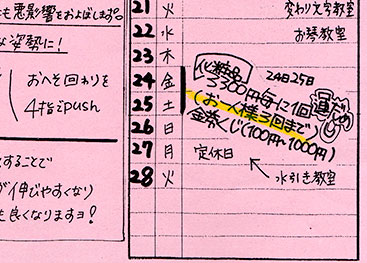 も悪影響をおよぼします。
な姿勢に!
おへそ回りを
4指でpush
することで
が伸びやすくなり
も良くなりますヨ!
21 火 変わり文字教室
22 水 お琴教室
23 木
24 金
25 土
26 日
27 月 定休日
28 火 水引き教室
化粧品 24日25日
3300円毎に1回 運だめし
(お一人様3回まで)
金券くじ(100円~1000円)